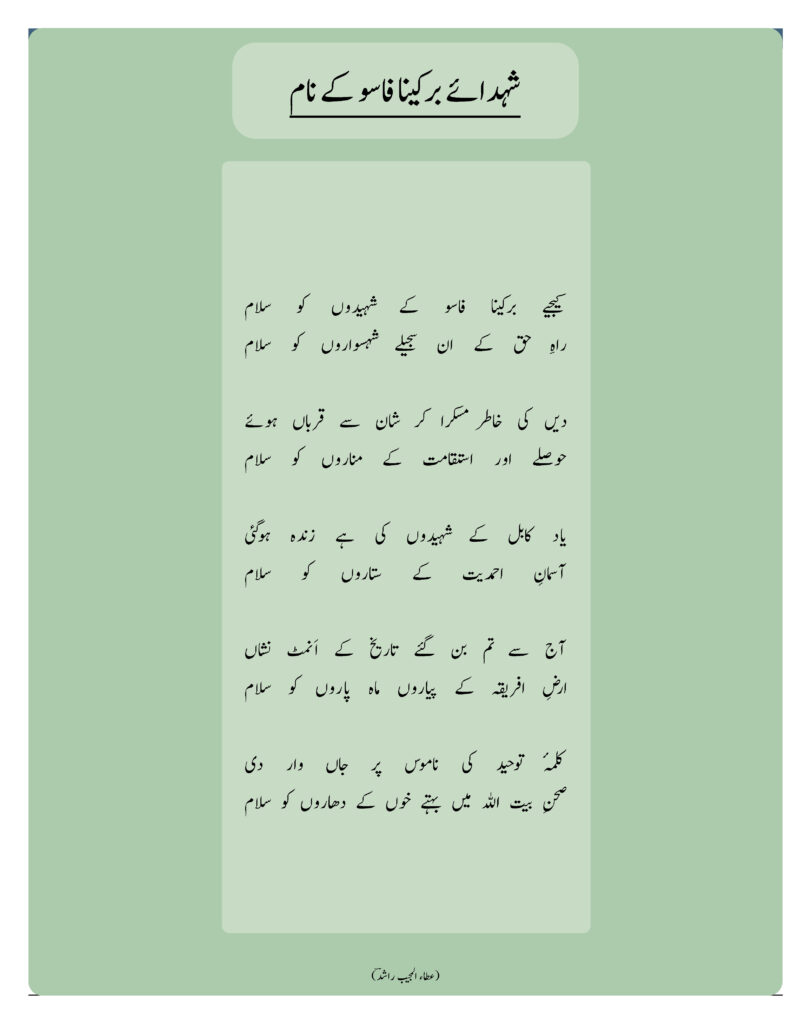 شہدائے برکینا فاسو کے نام
کیجیے برکینا فاسو کے شہیدوں کو سلام
راہِ حق کے ان سجیلے شہسواروں کو سلام
دیں کی خاطر مسکرا کر شان سے قرباں ہوئے
حوصلے اور استقامت کے مناروں کو سلام
یاد کابل کے شہیدوں کی ہے زندہ ہوگئی
آسمانِ احمدیت کے ستاروں کو سلام
آج سے تم بن گئے تاریخ کے اَنمٹ نشاں
ارضِ افریقہ کے پیاروں ماہ پاروں کو سلام
کلمۂ توحید کی ناموس پر جاں وار دی
صحنِ بیت اللہ میں بہتے خوں کے دھاروں کو سلام
(عطاء المجیب راشدؔ)